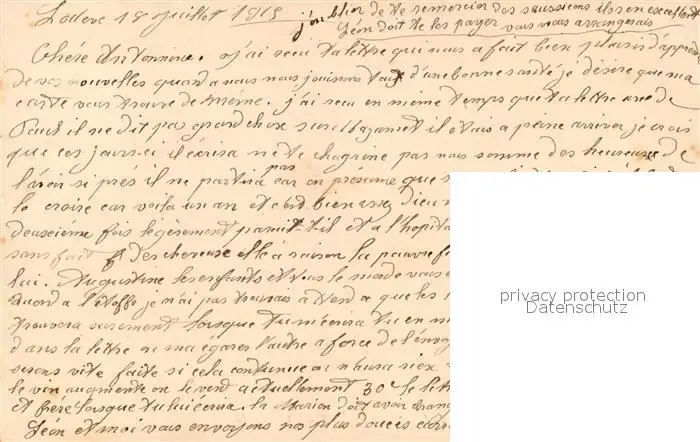 Lodeve 18 juillet 1915
j'oublier de te remercier des saucissons ils son excellents
Léon doit te les payer vous vous arrangerais
Chère Antonine. j'ai recu ta lettre qui nous a fait bien plaisir d'apprendre
de vos nouvelles quand a nous nous jouissons tous d'une bonne santé je désire que ma
carte vous trouve de même. j'ai recu en même temps que ta lettre une de
Paul il ne dit pas grand chose sur Mazamet il étais a peine arriver je crois
que ces jours-ci il écrira ne te chagrine pas nous somme des heureuses de
l'avoir si près il ne partira pas car on présume que
le croire car voila un an et c'est bien long Dieu
deuxième fois légèrement parait-il et a l'hopital
sans fait des cheveux elle a raison la pauvre
lui. Augustine les enfants et tous le monde vous
Quand a l'étoffe je n'ai pas trouvais a Vend a que les
trouvera surement lorsque tu m'écrira tu en
dans la lettre on m'a égarer l'autre a force de
serons vite faite si cela continue on n'aura
le vin augmente on le vend actuellement 30 le
et frère lorsque tu lui écrira. la Marion doit avoir
Léon et moi vous envoyons nos plus douces
privacy protection
Datenschutz